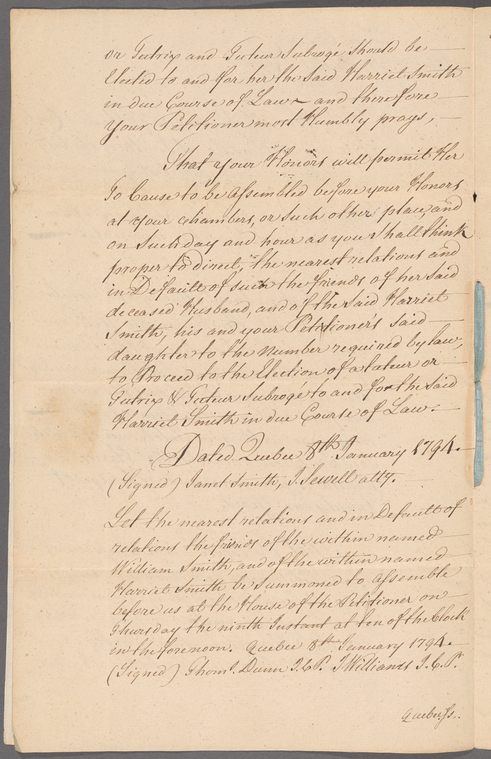 or Tutrix and Tuteur Subrogé Should be
Elected to and for her the said Harriet Smith
in due Course of Law and therefore
your Petitioner most Humbly prays,
That your Honors will permit Her
To Cause to be assembled before your Honors
at your Chambers, or such other place, and
on Such day and hour as you Shall think
proper to direct, the nearest relations and
in Default of such the friends of her said
deceased Husband, and of the said Harriet
Smith, his and your Petitioner's said
daughter to the Number required by law,
to Proceed to the Election of a tuteur or
Tutrix & Tuteur Subrogé to and for the said
Harriet Smith in due Course of Law.
Dated Quebec 8th January 1794.
(Signed) Janet Smith, J. Sewell atty.
Let the nearest relations and in Default of
relations the friends of the within named
William Smith, and of the within named
Harriet Smith be Summoned to assemble
before us at the House of the Petitioner on
Thursday the ninth Instant at ten of the Clock
in the forenoon. Quebec 8th January 1794.
(Signed) Thoms. Dunn J.C.P. J Williams J.C.P.
Quebec ss.